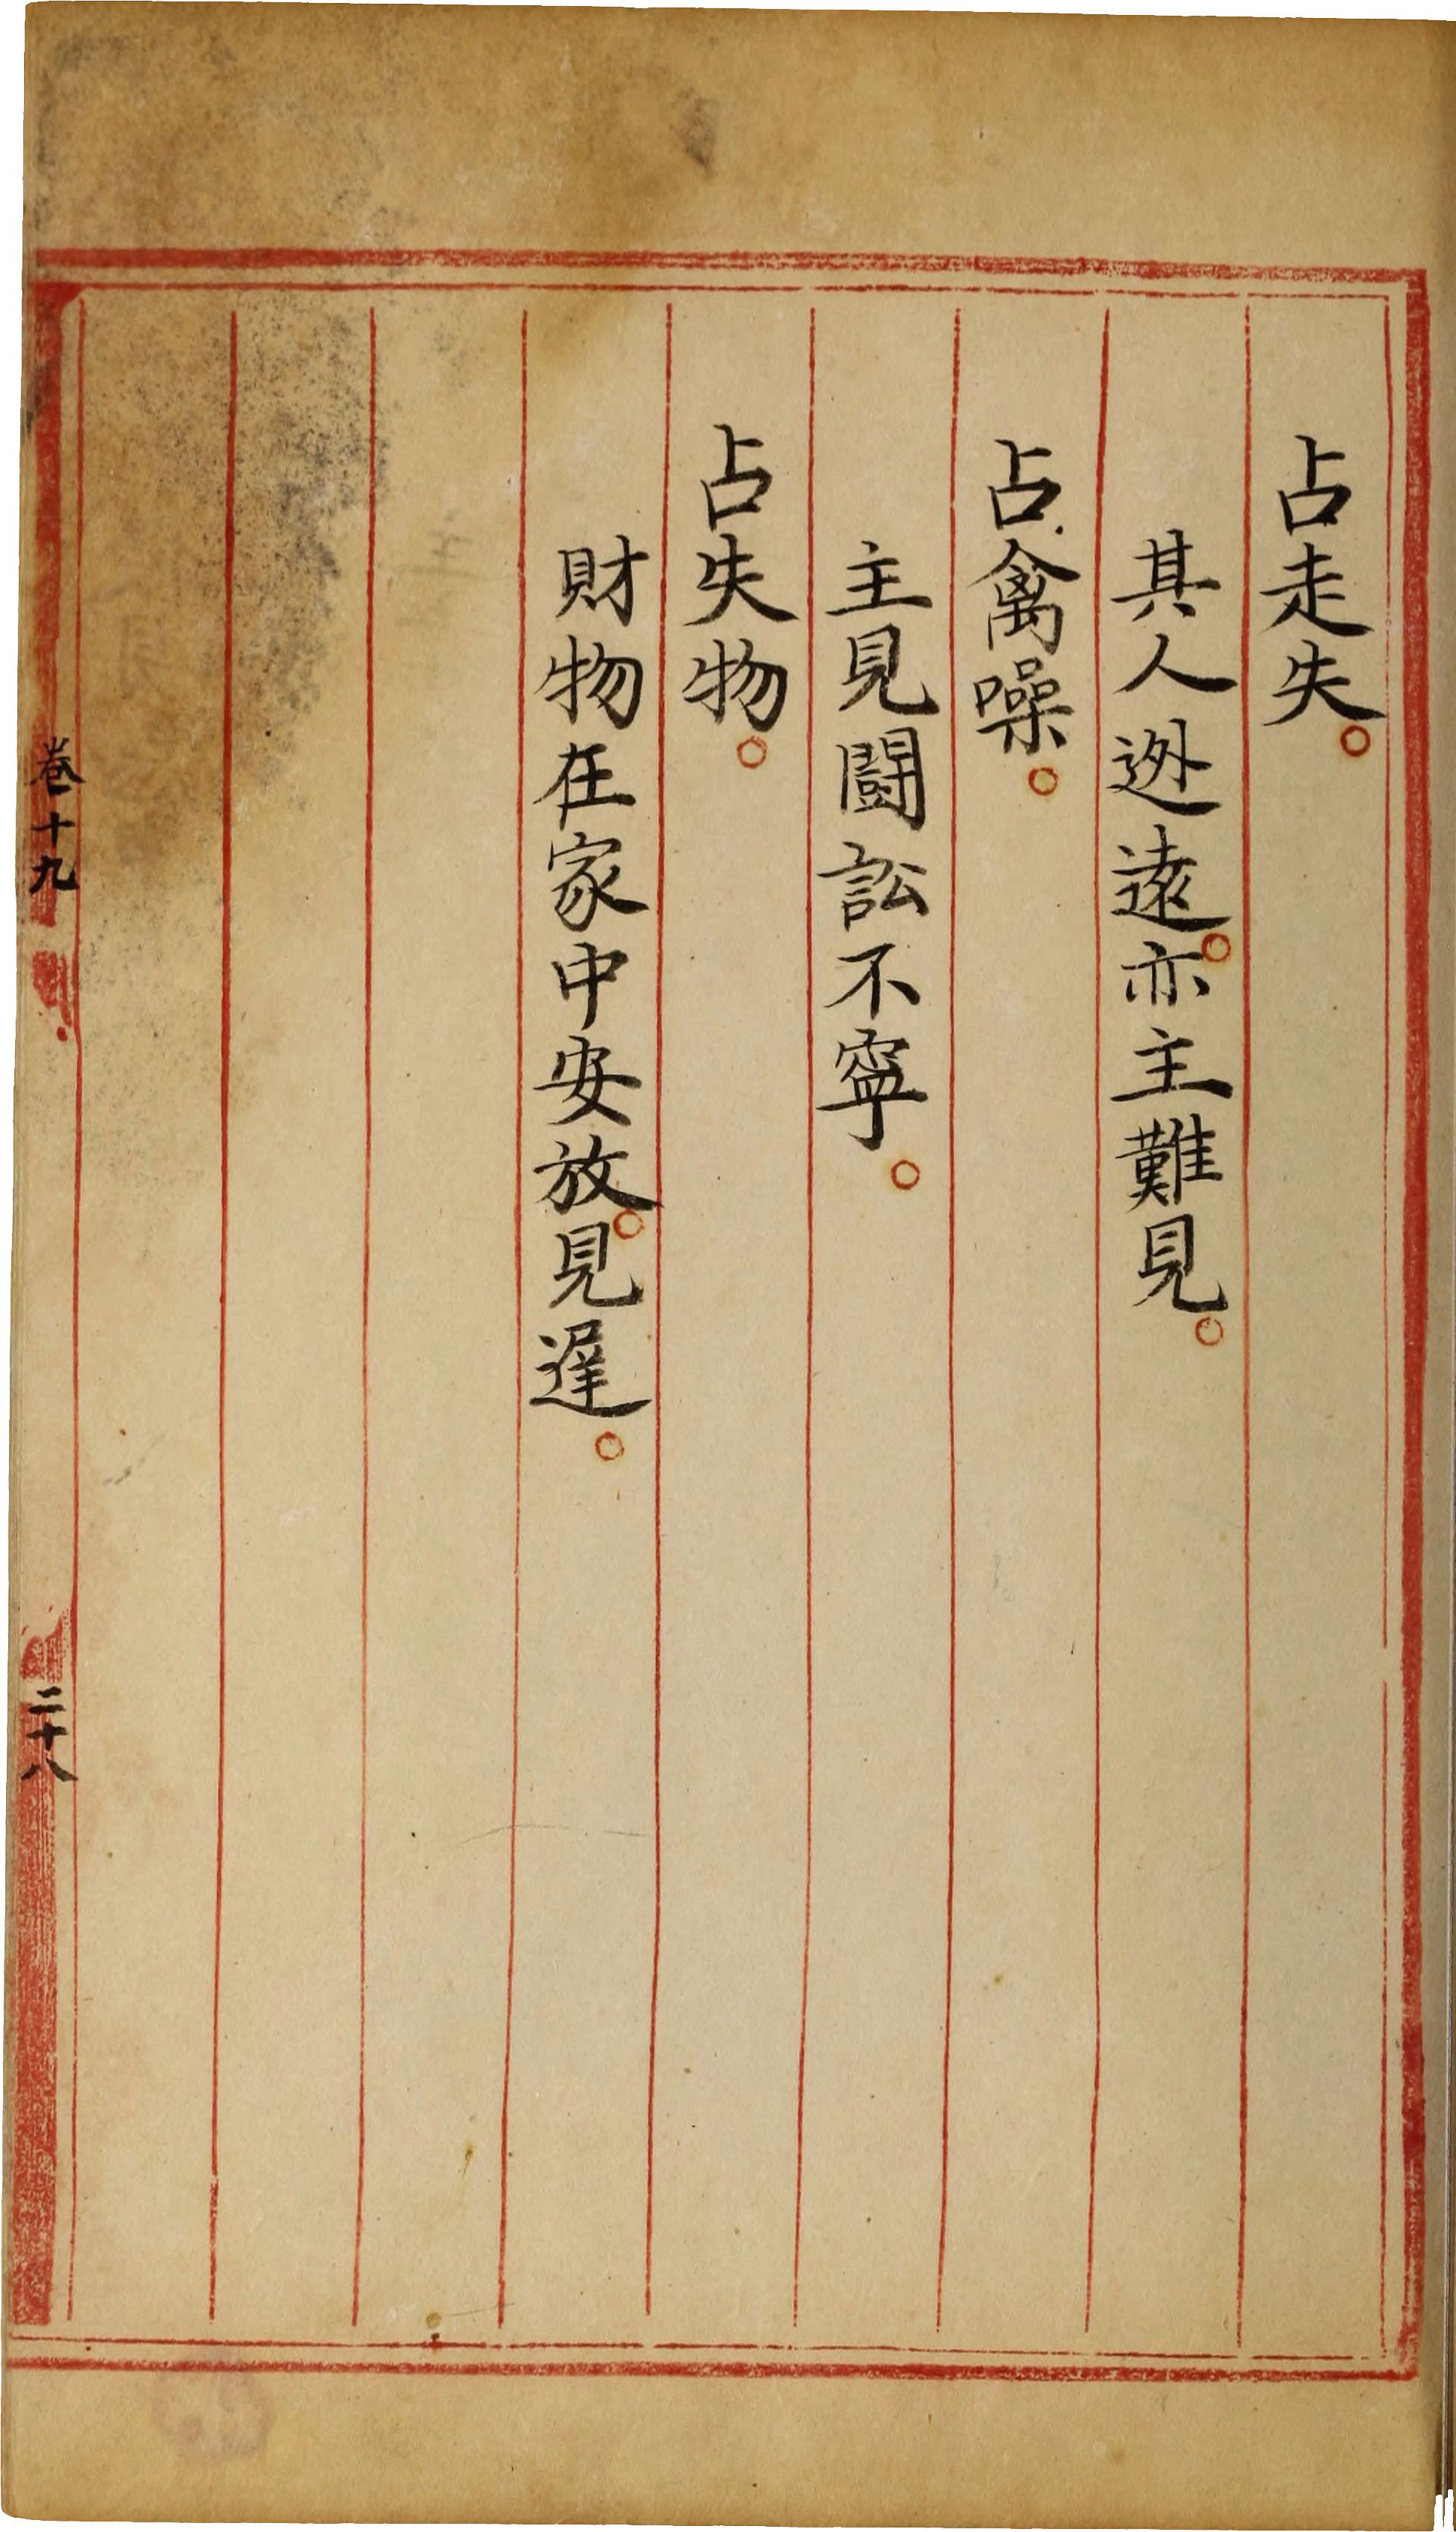 占走失。
其人迯遠。亦主難見。
占禽噪。
主見闘訟不寧。
占失物。
財物在家中安放。見遅。
卷十九
二十八